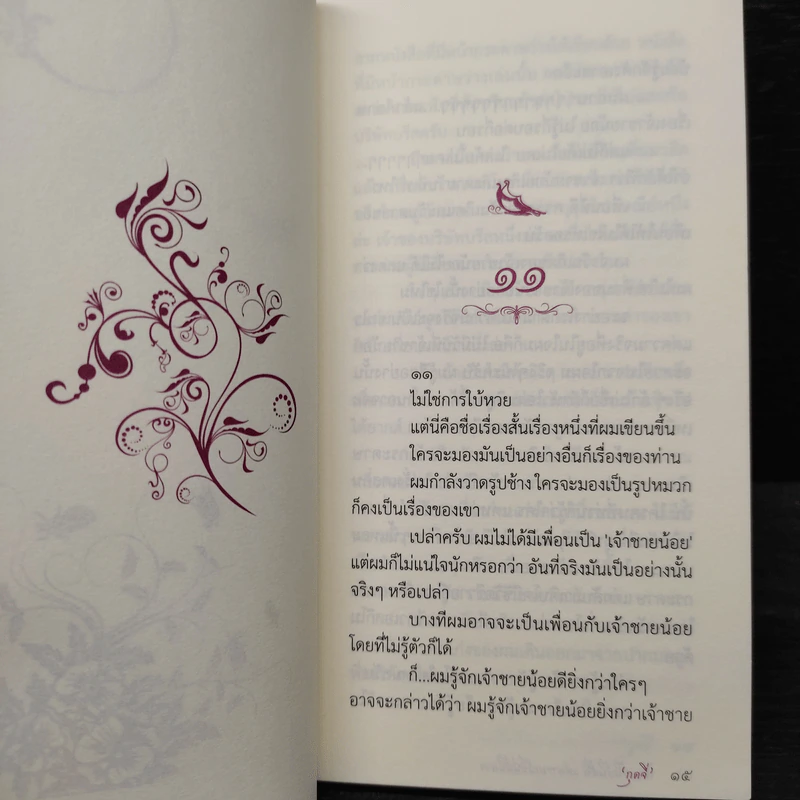 ๑๑
๑๑
ไม่ใช่การใบ้หวย
แต่นี่คือชื่อเรื่องสั้นเรื่องหนึ่งที่ผมเขียนขึ้น
ใครจะมองมันเป็นอย่างอื่นก็เรื่องของท่าน
ผมกำลังวาดรูปช้าง ใครจะมองเป็นรูปหมวก
ก็คงเป็นเรื่องของเขา
เปล่าครับ ผมไม่ได้มีเพื่อนเป็น 'เจ้าชายน้อย'
แต่ผมก็ไม่แน่ใจนักหรอกว่า อันที่จริงมันเป็นอย่างนั้น
จริงๆ หรือเปล่า
บางทีผมอาจจะเป็นเพื่อนกับเจ้าชายน้อย
โดยที่ไม่รู้ตัวก็ได้
ก็...ผมรู้จักเจ้าชายน้อยดียิ่งกว่าใครๆ
อาจจะกล่าวได้ว่า ผมรู้จักเจ้าชายน้อยยิ่งกว่าเจ้าชาย
'กุดจี่' ๑๕